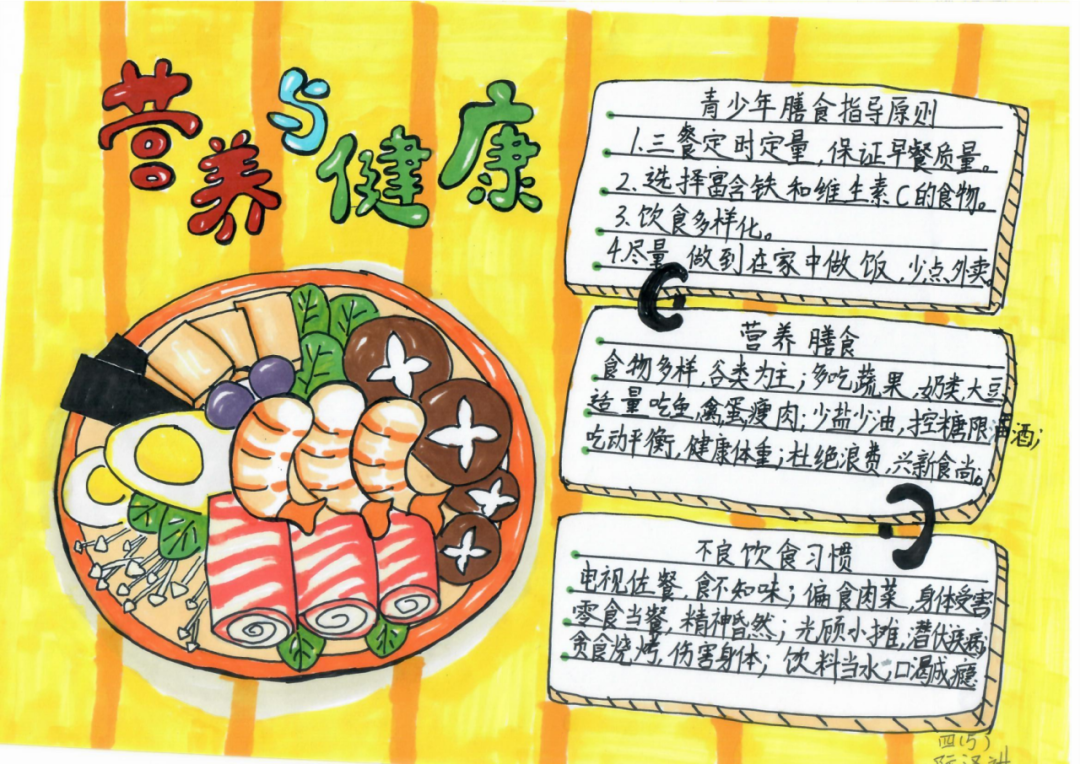 营养与健康
青少年膳食指导原则
1.三餐定时定量,保证早餐质量。
2.选择富含铁和维生素C的食物。
3.饮食多样化。
4.尽量做到在家中做饭,少点外卖。
营养膳食
食物多样,谷类为主;多吃蔬果、奶类、大豆
适量吃鱼,禽蛋瘦肉;少盐少油,控糖限酒;
吃动平衡,健康体重;杜绝浪费,兴新食尚。
不良饮食习惯
电视佐餐,食不知味;偏食肉菜,身体受害
零食当餐,精神昏然;光顾小摊,潜伏疾病
贪食烧烤,伤害身体;饮料当水,口渴成瘾
四(5)